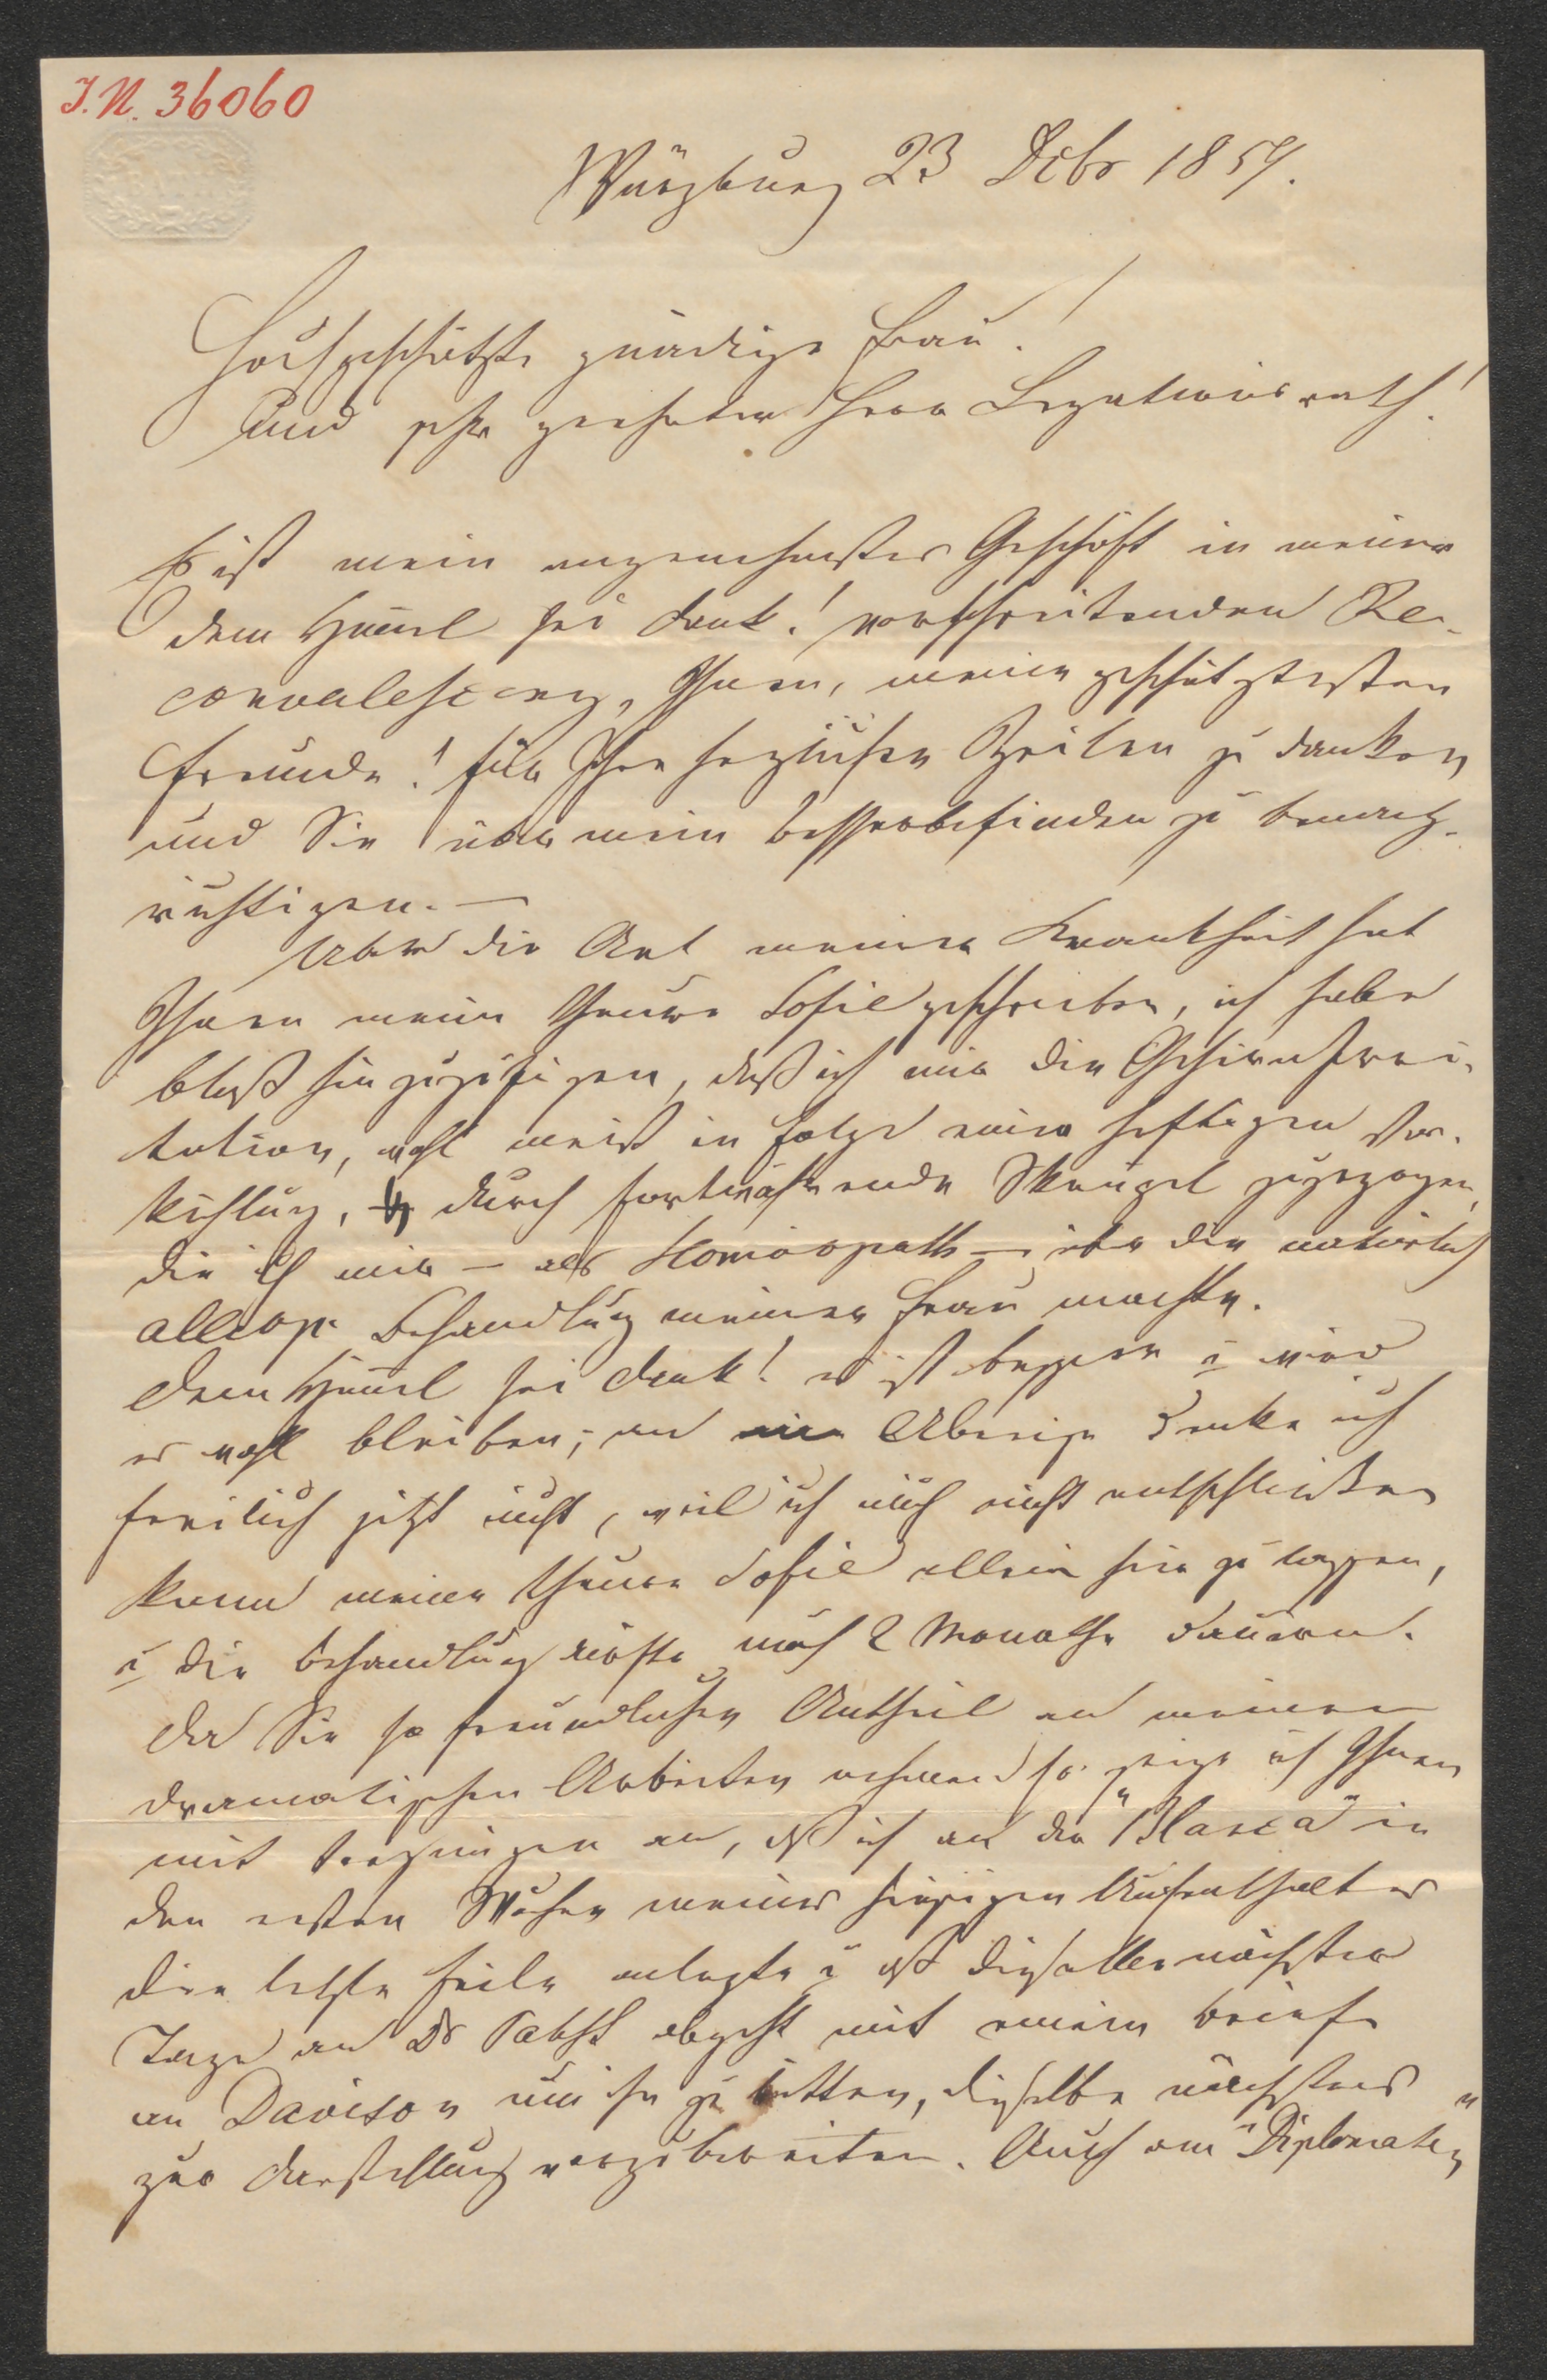 J.N. 36060
Würzburg 23 Dcbr 1857.
Hochgeschätzte gnädige Frau!
Und sehr geehrter Herr Legationsrath!
Es ist mein angenehmstes Geschäft in meiner
dem Himel sei Dank! vorschreitenden Re-
convalescenz, Ihnen, meine geschätztesten
Freunde! für Ihre herzlichen Zeilen zu danken
und Sie über mein Besserbefinden zu benach-
richtigen. —
Über die Art meiner Krankheit hat
Ihnen meine theure Sofie geschrieben, ich habe
bloß hinzuzufügen, daß ich mir die Gehirnirri-
tation, nicht meist in Folge einer heftigen Ver-
kühlung, durch fortwährende Skrupel zugezogen,
die ich mir — als Homöopath — über die natürlich
allöop. Behandlung meiner Frau machte.
Dem Himel sei Dank! es ist besser u wird
es wohl bleiben; an eine Abreise denke ich
freilich jetzt nicht, weil ich mich nicht entschließen
kann meine theure Sofie allein hier zu lassen,
u die Behandlung dürfte noch 2 Monathe dauern.
Da Sie so freundlichen Antheil an meinen
dramatischen Arbeiten nehmen so zeige ich Ihnen
mit Vergnügen an, daß ich an die "Blanca" in
den ersten Wochen meines hiesigen Aufenthaltes
die letzte Feile anlegte u daß dieß aller nächster
Tage an Dr Pabst abgeht mit einem Briefe
an Davison um ihn zu bitten, dieselbe nächstens
zur Darstellung vorzubereiten. Auch am "Diplomaten"